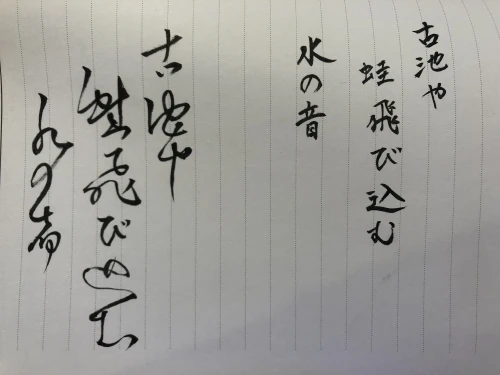 古池や
蛙飛び込む
水の音
古池や
蛙飛び込む
水の音